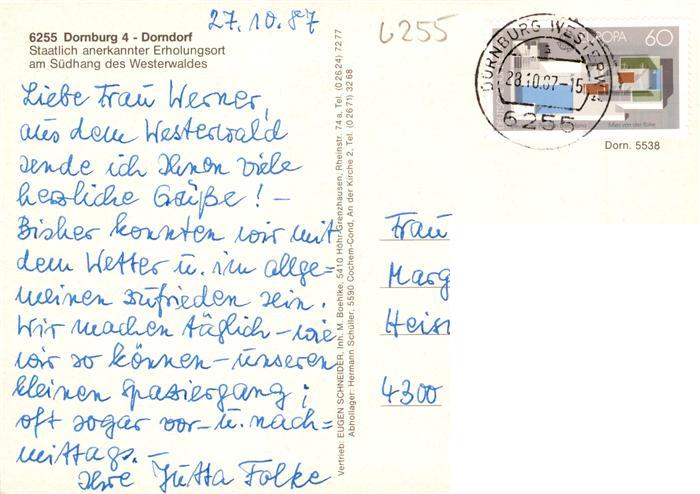 27.10.87
6255
6255 Dornburg 4 - Dorndorf
Staatlich anerkannter Erholungsort
am Südhang des Westerwaldes
Liebe Frau Werner,
aus dem Westerwald
sende ich Ihnen viele
herzliche Grüße! –
Bisher konnten wir mit
dem Wetter u. im allge=
meinen zufrieden sein.
Wir machen täglich – wie
wir so können – unseren
kleinen Spaziergang;
oft sogar vor- u. nach=
mittags. –
Ihre Jutta Folke
Vertrieb: EUGEN SCHNEIDER, Inh. M. Boehlke, 5410 Höhr-Grenzhausen, Rheinstr. 74a, Tel. (0 26 24) 72 77
Abhollager: Hermann Schüller, 5590 Cochem-Cond, An der Kirche 2, Tel. (0 26 71) 32 68
DORNBURG WESTERW
28.10.87-15
6255
EUROPA 60
Mies van der Rohe
Dorn. 5538
Frau
Marg
Heis
4300